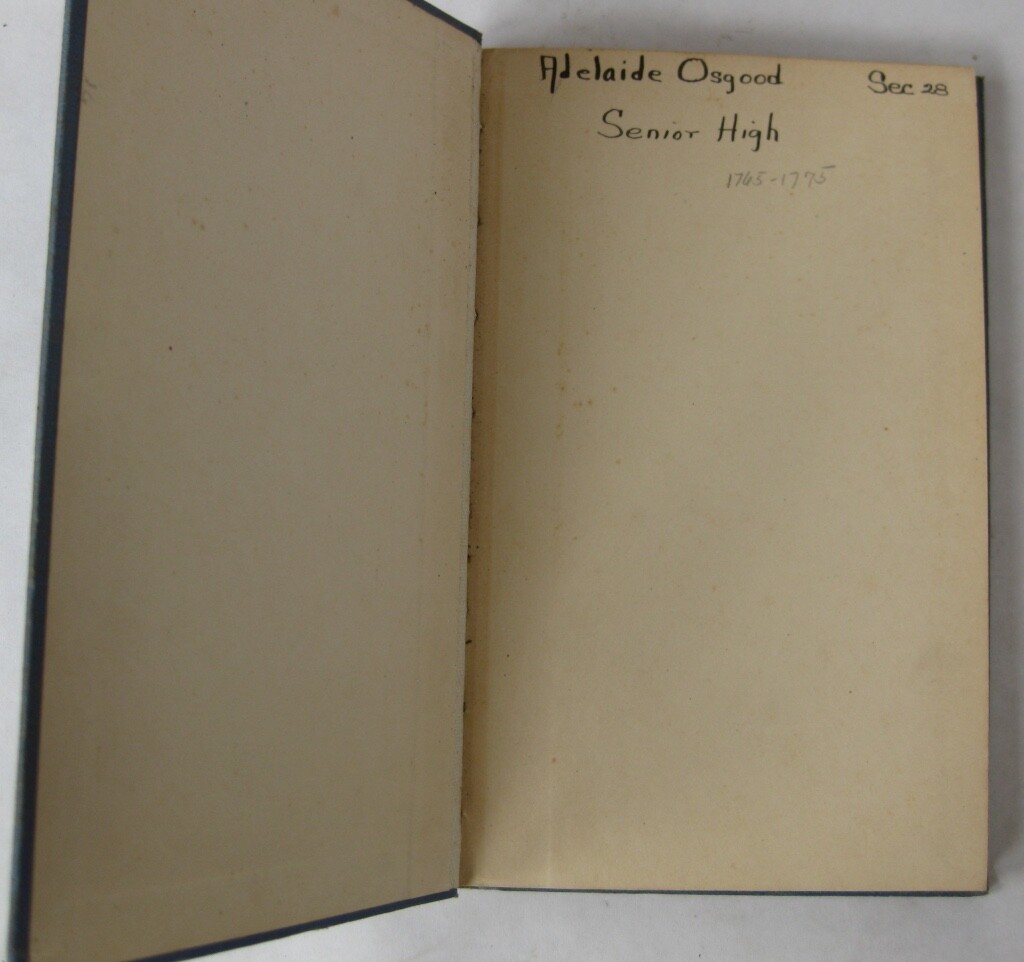 Adelaide Osgood Sec 28
Senior High
1765-1775